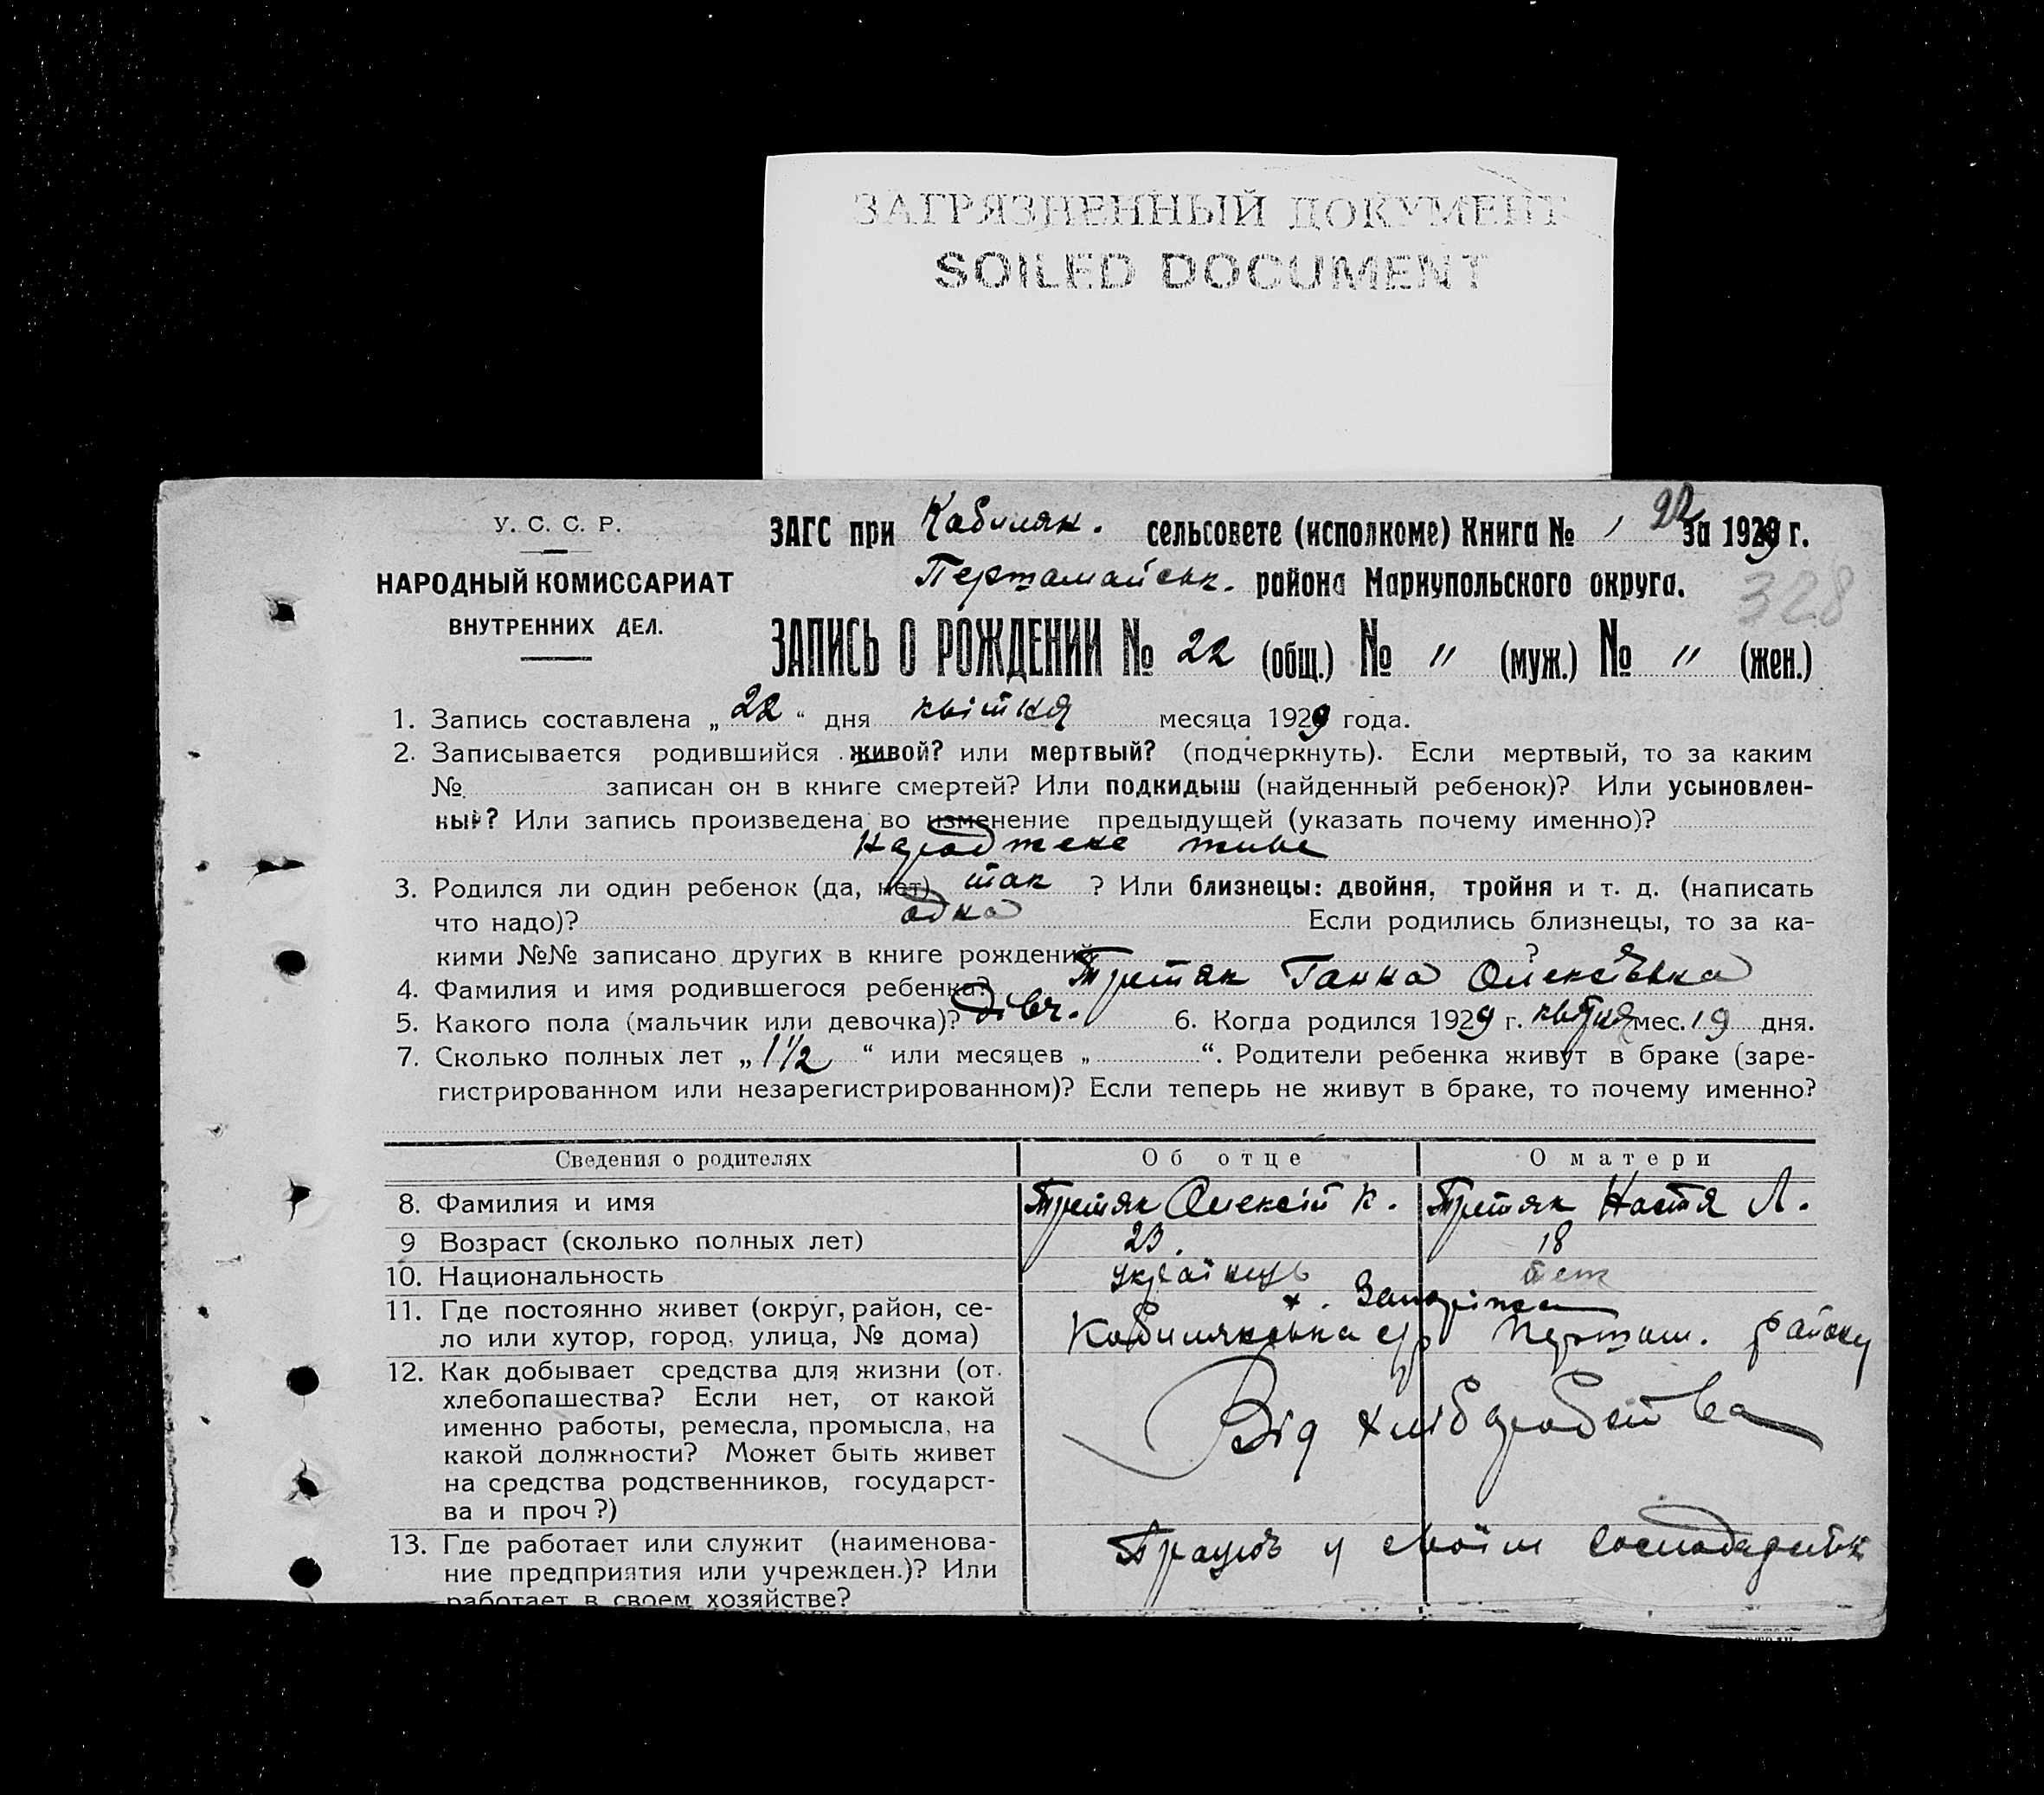 ЗАГРЯЗНЕННЫЙ ДОКУМЕНТ
SOILED DOCUMENT
У. С. С. Р.
НАРОДНЫЙ КОМИССАРИАТ
ВНУТРЕННИХ ДЕЛ.
22
ЗАГС при Кабиляк. сельсовете (исполкоме) Книга № 1 за 1929 г.
Першамайськ. района Мариупольского округа.
328
ЗАПИСЬ О РОЖДЕНИИ № 22 (общ.) № " (муж.) № " (жен.)
1. Запись составлена „ 22 “ дня квітня месяца 1929 года.
2. Записывается родившийся живой? или мертвый? (подчеркнуть). Если мертвый, то за каким
№ записан он в книге смертей? Или подкидыш (найденный ребенок)? Или усыновлен-
ный? Или запись произведена во изменение предыдущей (указать почему именно)?
живе
3. Родился ли один ребенок (да, нет) так ? Или близнецы: двойня, тройня и т. д. (написать
что надо)? одна Если родились близнецы, то за ка-
кими №№ записано других в книге рождений ?
4. Фамилия и имя родившегося ребенка? Третяк Ганна Олексіївна
5. Какого пола (мальчик или девочка)? дівч. 6. Когда родился 1929 г. квітня мес. 19 дня.
7. Сколько полных лет „ 1½ “ или месяцев „ “. Родители ребенка живут в браке (заре-
гистрированном или незарегистрированном)? Если теперь не живут в браке, то почему именно?
Сведения о родителях Об отце О матери
8. Фамилия и имя Третяк Олексій К. Третяк Настя Л.
9 Возраст (сколько полных лет) 23. 18
10. Национальность українць
11. Где постоянно живет (округ, район, се-
ло или хутор, город, улица, № дома)
х.
Кабилякська с/р Першам. району
12. Как добывает средства для жизни (от
хлебопашества? Если нет, от какой
именно работы, ремесла, промысла, на
какой должности? Может быть живет
на средства родственников, государст-
ва и проч?)
Від хлібаробства
13. Где работает или служит (наименова-
ние предприятия или учрежден.)? Или
работает в своем хозяйстве?
Працює у своїм